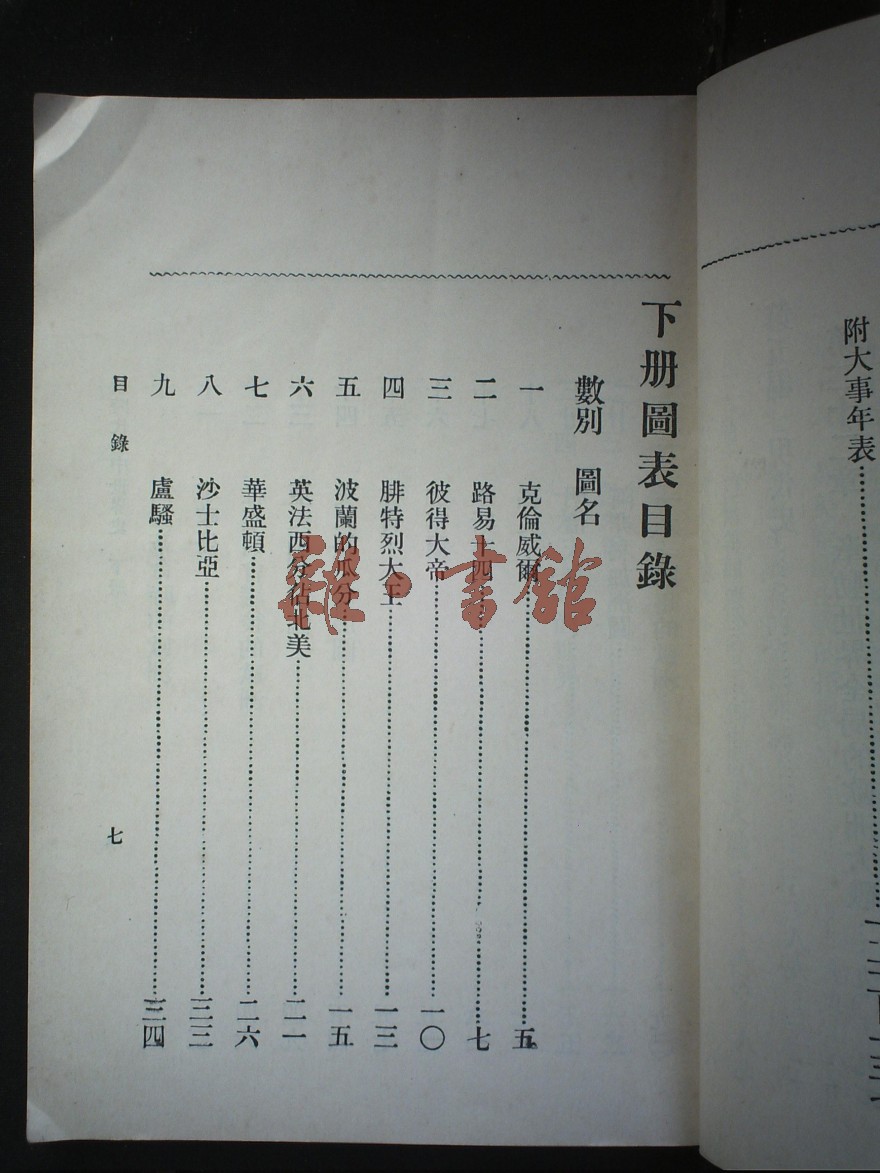 附大事年表
下册圖表目錄
數別 圖名
一 克倫威爾 五
二 路易十四 七
三 彼得大帝 一〇
四 腓特烈大王 一三
五 波蘭的瓜分 一五
六 英法西分佔北美 二一
七 華盛頓 二六
八 沙士比亞 三三
九 盧騷 三四
目錄 七
雜·書館